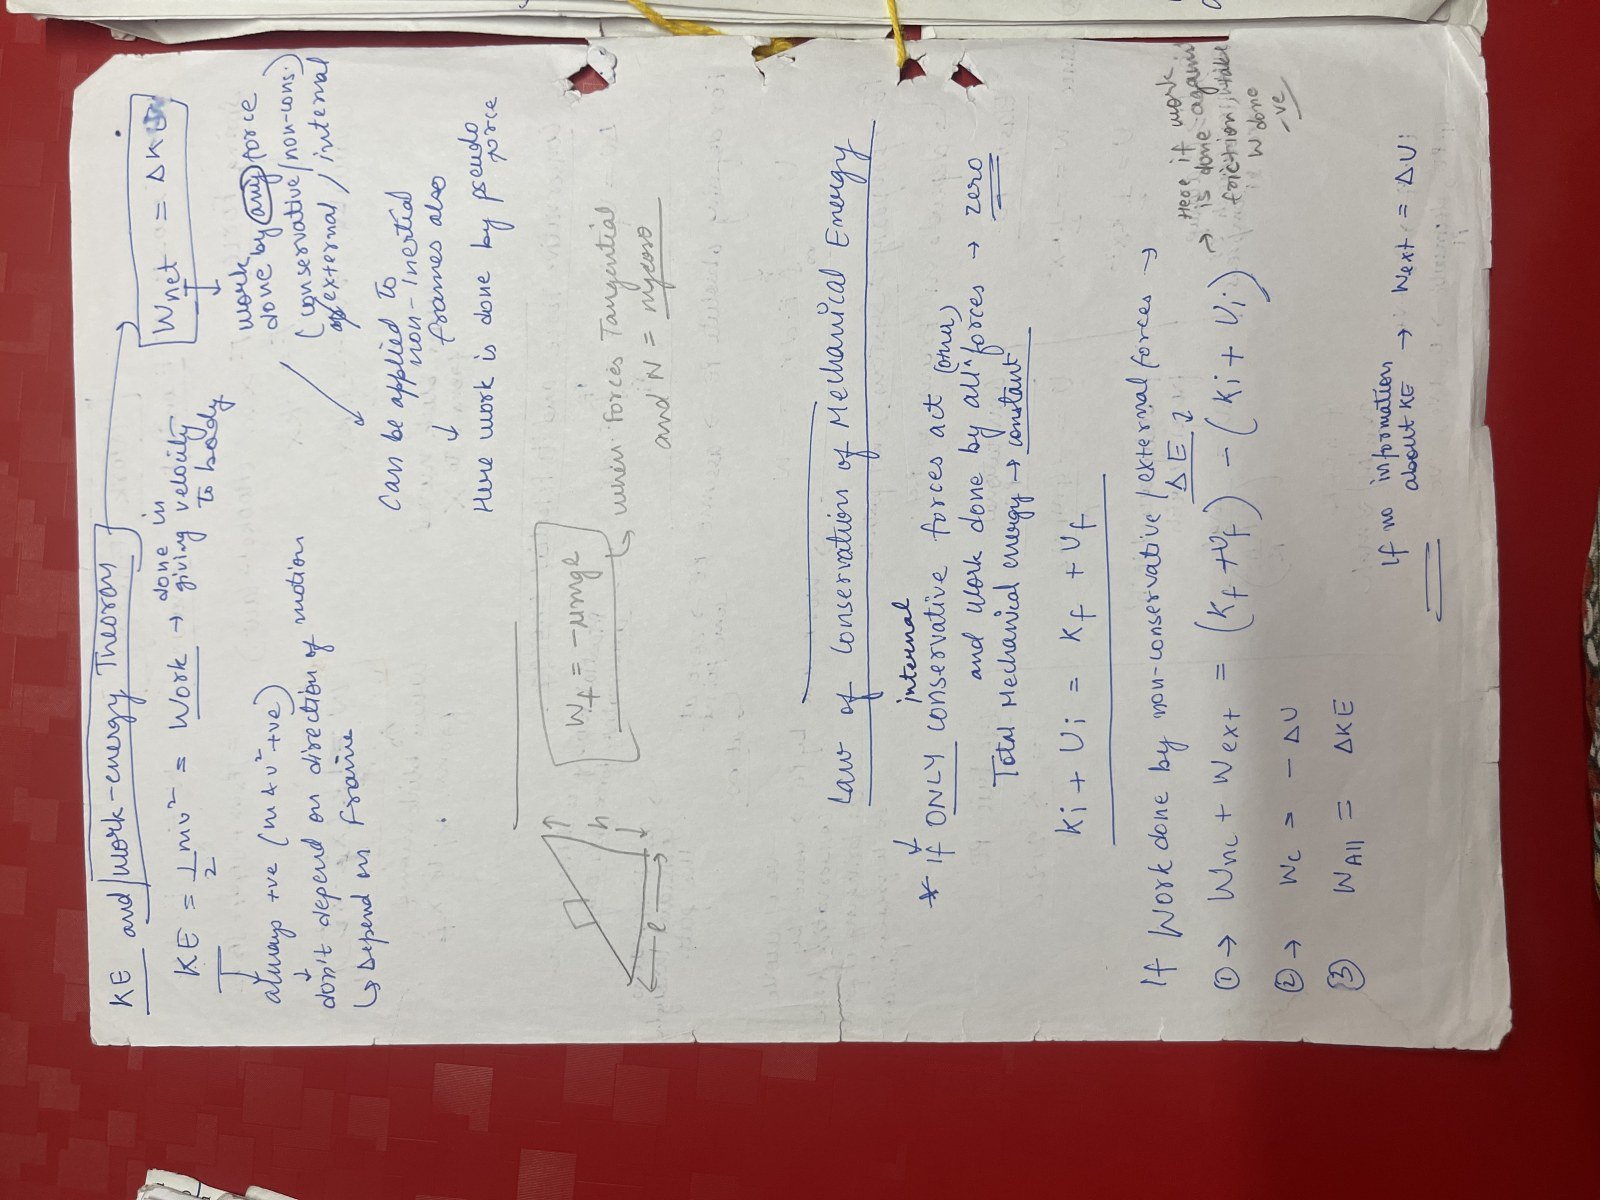 KE and work-energy Theorem
KE = 1/2 mv² = Work → done in giving velocity to body
Wnet = ΔK
always +ve (m & v² +ve)
don't depend on direction of motion
↳ Depend on frame
work done by any force
(conservative/non-cons.)
external / internal
can be applied to
non-inertial
frames also
Here work is done by pseudo force
h
l
Wf = -μmgl
↳ when forces Tangential
and N = mgcosθ
Law of Conservation of Mechanical Energy
* If ONLY internal conservative forces act
and work done by all (other) forces → zero
Total Mechanical energy → constant
Ki + Ui = Kf + Uf
If Work done by non-conservative / external forces →
ΔE
① → Wnc + Wext = (Kf + Uf) - (Ki + Ui)
→ Here if work
is done against
friction, take
W done
-ve
② → Wc = - ΔU
③ WAll = ΔKE
If no information
about KE → Wext = ΔU